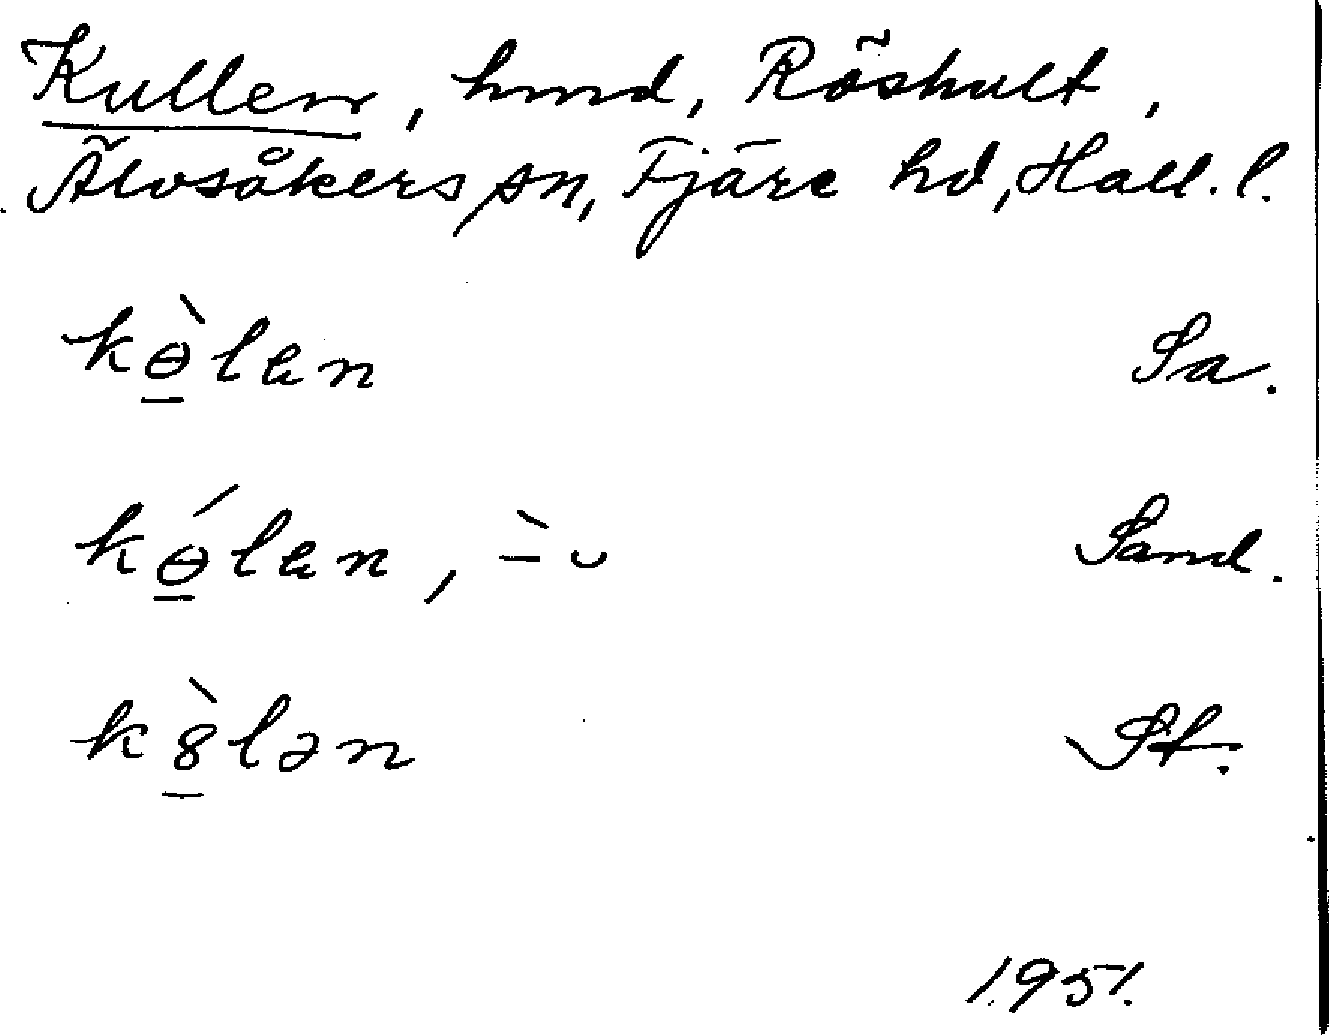 Kullen, hmd, Röshult,
Älvsåkers sn, Fjäre hd, Hall. l.
kɵ̠̀lɐn Sa.
kɵ̠́lɐn, -̀ ᴗ Sand.
k8̠̀lən St.
1951.